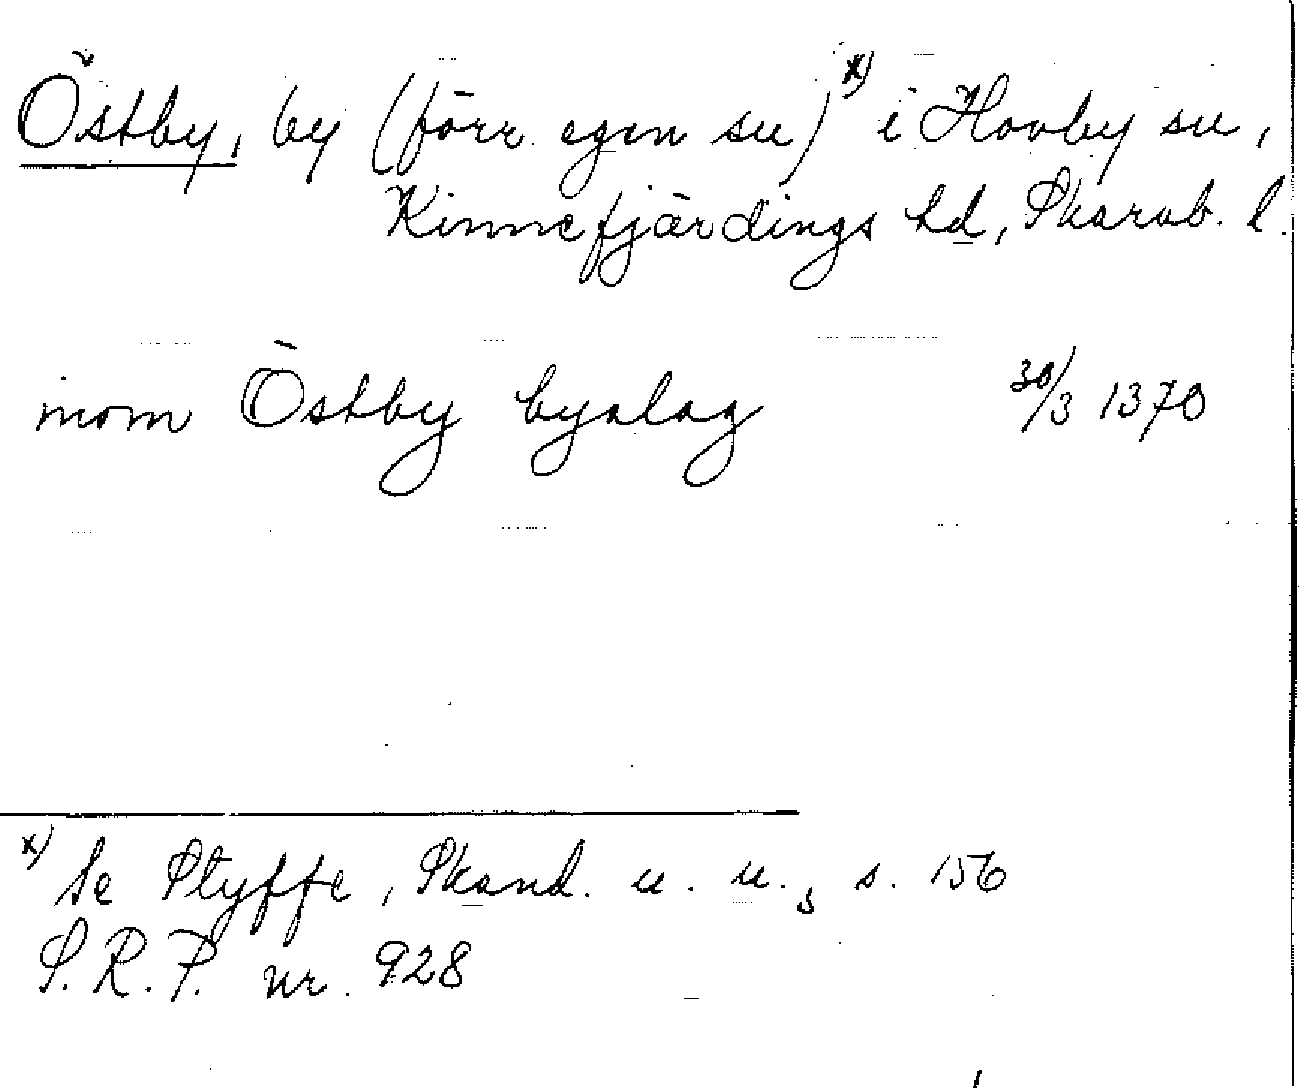 Östby, by (förr egen sn) x) i Hovby sn,
Kinnefjärdings hd, Skarab. l.
inom Östby byalag 30/3 1370
x) Se Styffe, Skand. u. u., s. 156
S.R.P. nr. 928